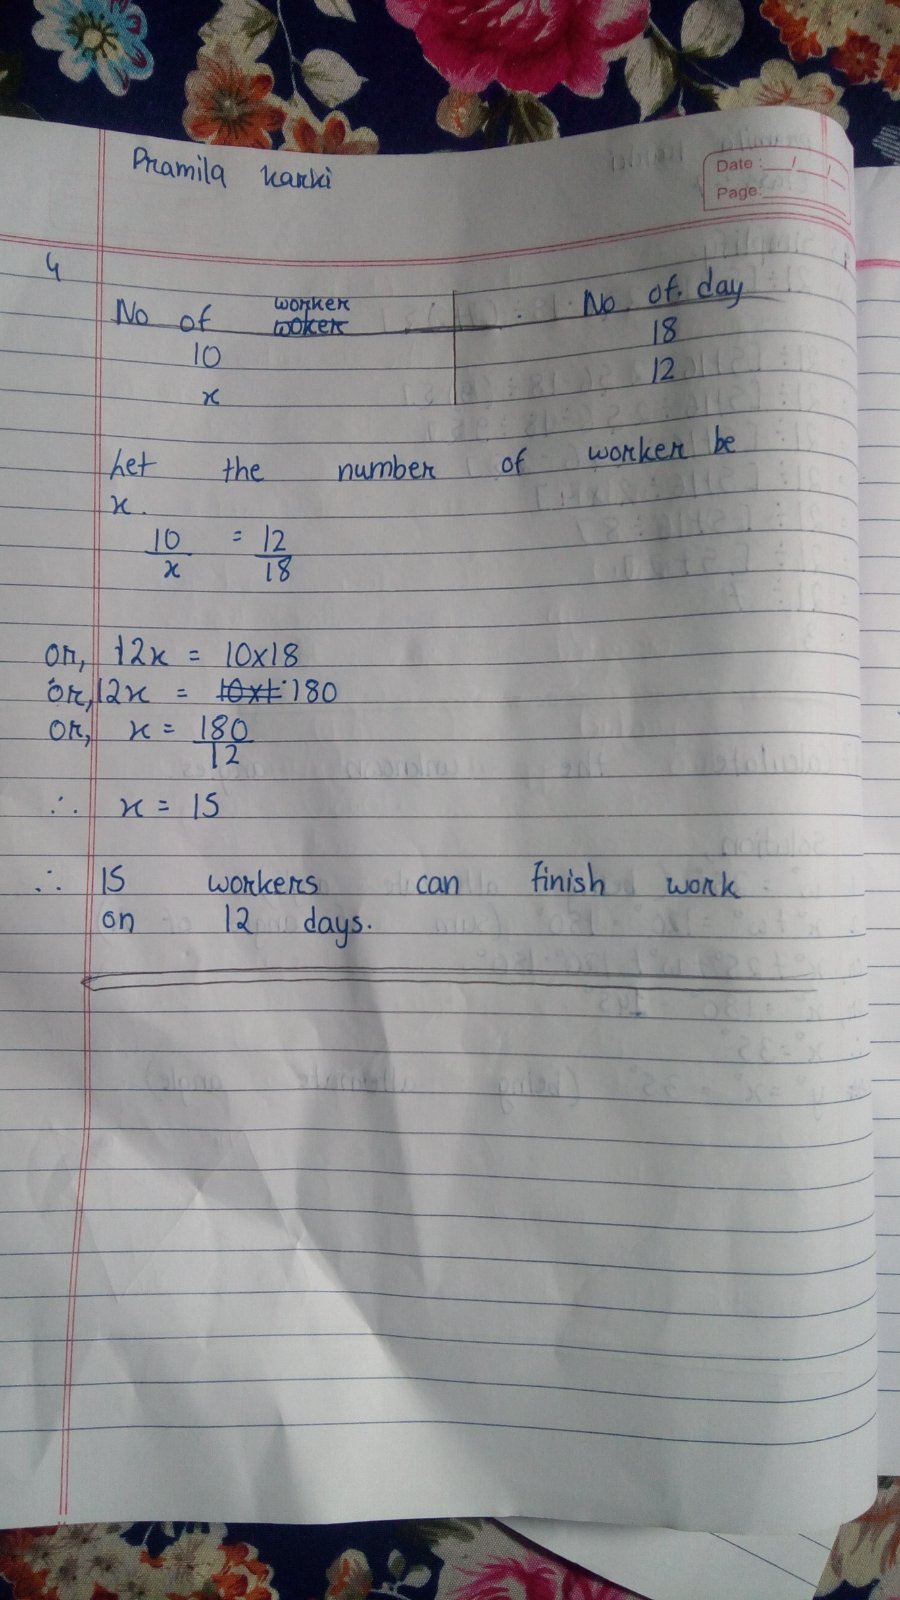 Pramila Karki
Date : __/__/__
Page:
4
No of worker woker . No. of. day
10 18
x 12
Let the number of worker be
x.
10/x = 12/18
or, 12x = 10x18
or, 12x = 10x1 180
or, x = 180/12
∴ x = 15
∴ 15 workers can finish work
on 12 days.